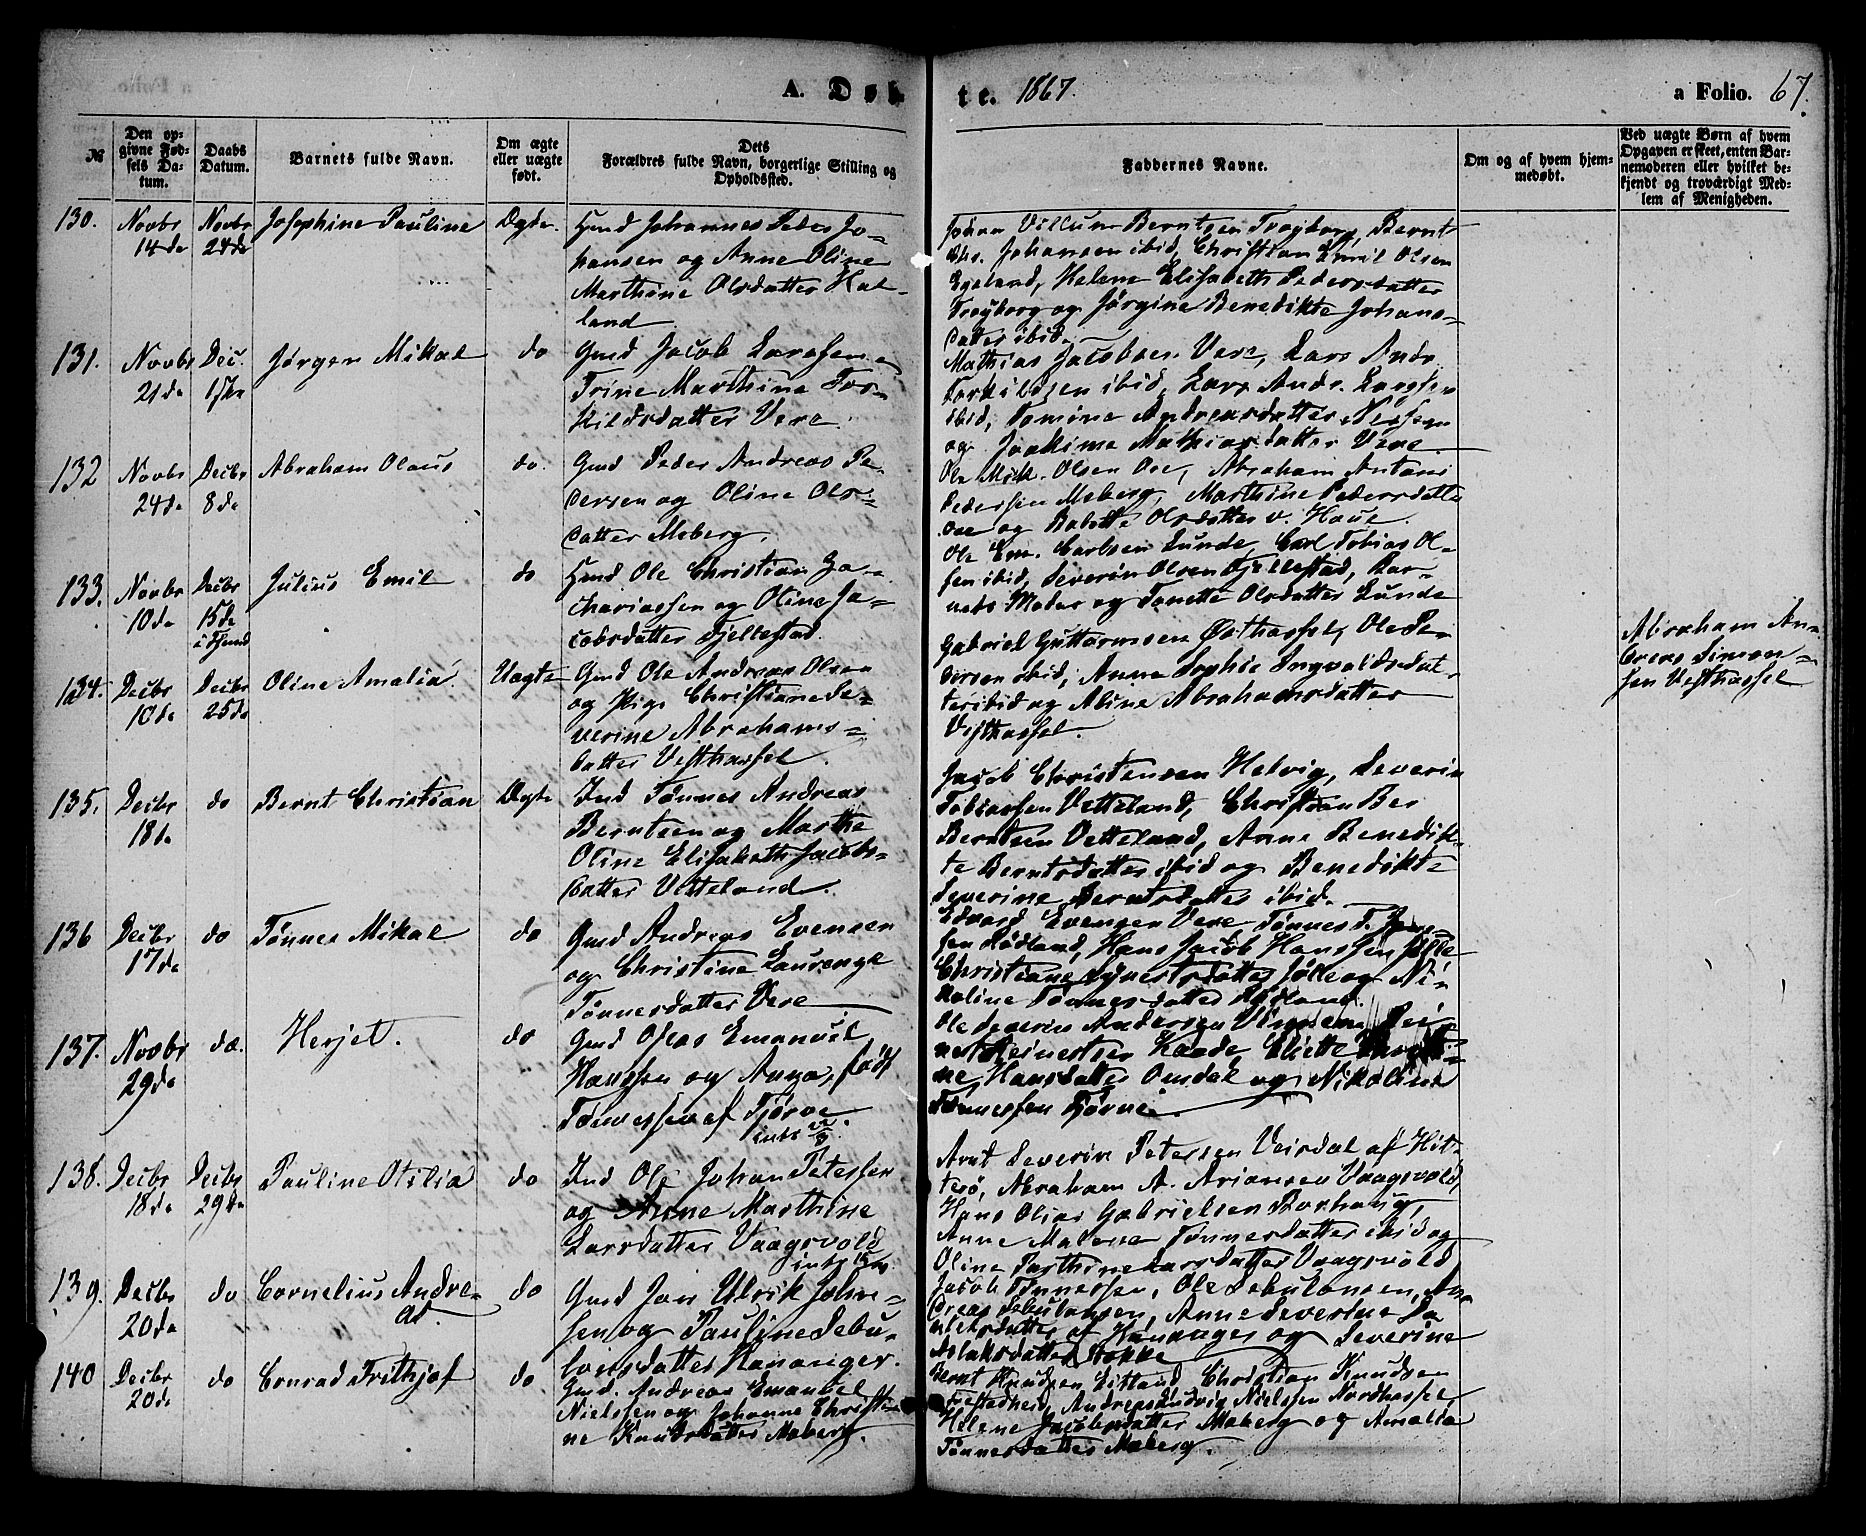 A. Døb-
te. 1867.
a Folio. 67.
№
Den op-
givne Fød-
sels Da-
tum.
Daabs
Datum.
Barnets fulde Navn.
Om ægte
eller uægte
født.
Dets
Forældres fulde Navn, borgerlige Stilling og
Opholdssted.
Faddernes Navne.
Om og af hvem hjem-
medøbt.
Ved uægte Børn af hvem
Opgaven er skeet, enten Bar-
nemoderen eller hvilket be-
kjendt og troværdigt Med-
lem af Menigheden.
130.
Novbr
14de
Novbr
24de
Josephine Pauline
Ægte.
Gmd Johannes Peder Jo-
hansen og Anne Oline
Marthine Olsdatter Hal-
land
Johan Villum Berntsen Trøyborg, Bernt
Johansen ibid, Christian Emil Olsen
Egeland, Helene Elisabeth Pedersdatter
Trøyborg og Jørgine Benedikte Johans-
datter ibid.
131.
Novbr
21de
Dec.
1ste
Jørgen Mikal
do
Gmd Jacob Larssen
Trine Marthine Tor-
kildsdatter Vere.
Mathias Jacobsen Vere, Lars Andr.
Torkildsen ibid, Lars Andr. Larssen
ibid, Tomine Andreasdatter
og Joakime Mathiasdatter Vere
132
Novbr
24de
Decbr
8de
Abraham Olaus
do.
Gmd Peder Andreas Pe-
dersen og Oline Ols-
datter Meberg.
Ole Mik. Olsen Ore, Abraham Antoni
Pedersen Meberg, Marthine Pedersdatter
Ore og Babette Olsdatter v. Haue.
133.
Novbr
10de
Decbr
15de
i Hjemd
Julius Emil
do
Gmd Ole Christian Za-
chariassen og Oline Ja-
cobsdatter Fjellestad.
Ole Em. Carlsen Lunde, Carl Tobias Ol-
sen ibid, Severin Olsen Fjellestad, Bar-
nets Moder og Tonette Olsdatter Lunde
134.
Decbr
10de
Decbr
25de
Oline Amalia
Uægte
Gmd Ole Andreas Olsen
og Pige Christiane Se-
verine Abrahams-
datter Vesthassel.
Gabriel Guttormsen Østhassel, Ole Pe-
dersen ibid, Anne Sophie Ingvaldsdat-
ter ibid og Aline Abrahamsdatter
Vesthassel.
Abraham An-
dreas Simon-
sen Vesthassel
135.
Decbr
18de
do
Bernt Christian
Ægte
Ind Tønnes Andreas
Berntsen og Marthe
Oline Elisabeth Jacobs-
datter Vetteland.
Jacob Christensen Helvig, Severin
Tobiassen Vetteland, Christian Ber
Berntsen Vetteland, Anne Benedik-
te Berntsdatter ibid og Benedikte
Severine Berntsdatter ibid.
136
Decbr
17de
do
Tønnes Mikal
do
Gmd Andreas Evensen
og Christine Laurenze
Tønnesdatter Vere
Edvard Evensen Vere, Tønnes T. Jon-
sen Rødland, Hans Jacob Hanssen Jølle
Christiane Jølle og Ni-
koline Tønnesdatter Rødland.
137.
Novbr
29de
do.
Herjet.
do
Gmd Oseas Emanuel
Hanssen og Anna, født
Tønnessen af Tjørve
Ole Severin Andersen
Kaade, Eliette
ne Hansdatter Omdal og Nikoline
Tønnessen Tjørve.
138.
Decbr
18de
Decbr
29de
Pauline Otilia
do
Ind Ole Johan Peterssen
og Anne Marthine
Larsdatter Vaagsvold
Arnt Severin Petersen Veisdal af Hit-
terø, Abraham A. Ariansen Vaagsvold,
Hans Olias Gabrielsen Borhaug,
Anne Malene Tønnesdatter ibid og
Oline Parthine Larsdatter Vaagsvold
139.
Decbr
20de
do
Cornelius Andre-
as.
do
Gmd Jon Ulrik John-
sen og Pauline Sebu-
lonsdatter Hananger.
Jacob Tønnessen, Ole Sebulonsen, An-
dreas Sebulonsen, Anne Severine Da
nielsdatter af Hananger og Severine
Aslaksdatter Stokke
140
Decbr
20de
do
Conrad Frithjof
do
Gmd. Andreas Emanuel
Nielssen og Johanne Christi-
ne Knudsdatter Maberg.
Bernt Knudsen Eitland, Christian Knudsen
Jøestadheid, Andreas Ludvig Nielssen Nordhassel,
Helene Jacobsdatter Maberg og Amalia
Tønnesdatter Maberg.